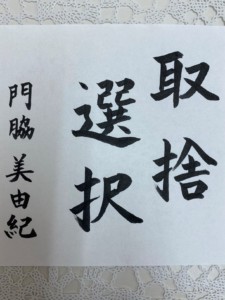 取捨
選択
門脇美由紀